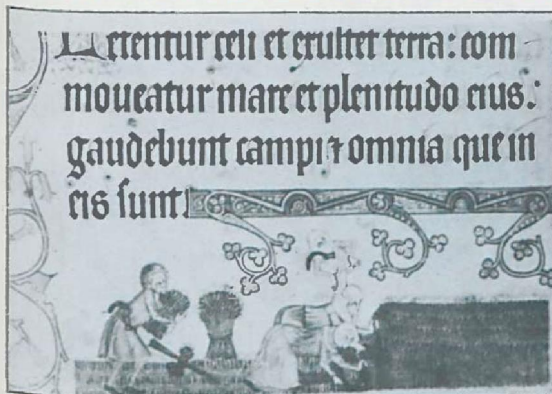 Letentur celi et exultet terra: com
moueatur mare et plenitudo eius.
gaudebunt campi ⁊ omnia que in
eis sunt.